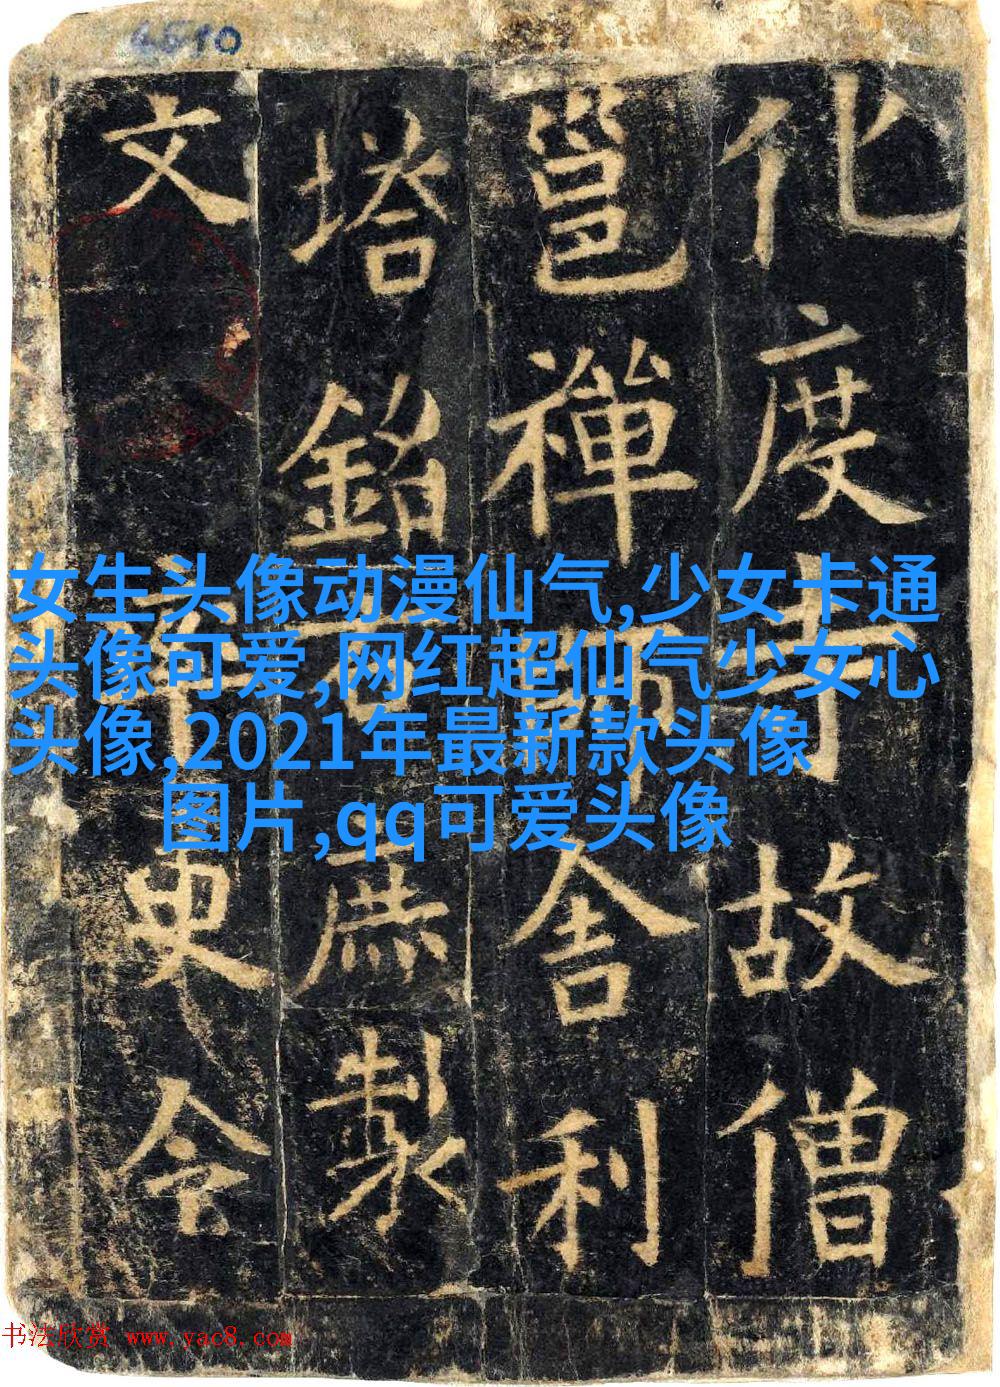 化度寺故僧
邕禪師舍利
塔銘右庶製
文率更令
女生头像动漫仙气,少女卡通
头像可爱,网红超仙气少女心
头像,2021年最新款头像
图片,qq可爱头像
书法欣赏 www.yac8.com